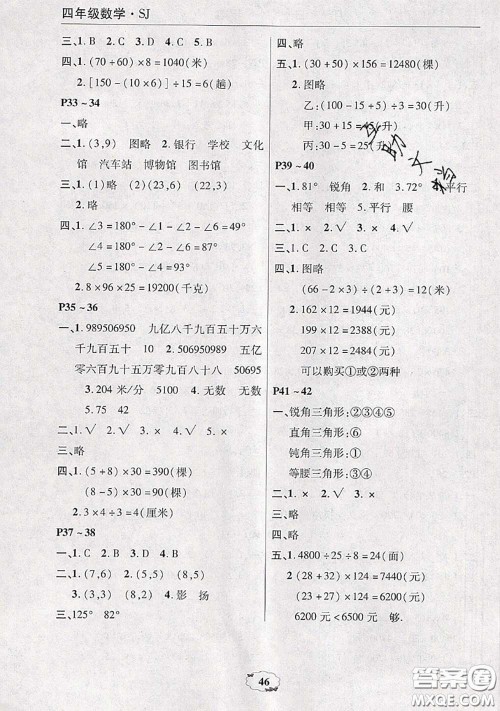 四年级数学·SJ
三、1. B　2. C　3. A　4. D　5. B
四、1. (70+60)×8=1040(米)
2. [150-(10×6)]÷15=6(趟)
P33~34
一、略
二、1. (3,9)　图略　2. 银行　学校　文化
馆　汽车站　博物馆　图书馆
三、1. (16,3)　(2)(23,6)　(22,3)
2. 略
四、1. ∠3=180°-∠1-∠2=49°
∠4=180°-∠6-∠5=61°
∠5=180°-∠8-∠7=90°
2. 8×96×25=19200(千克)
P35~36
一、1. 989506950　九亿八千九百五十万六
千九百五十　10　2. 506950989　五亿
零六百九十五万零九百八十八　50695
3. 204米/分　5100　4. 无数　无数
5. 75　42
二、1. √　2. √　3. ×　4. √　5. √
三、略
四、1. (5+8)×30=390(棵)
(8-5)×30=90(棵)
2. 3×4÷3=4(厘米)
P37~38
一、1. C　2. B　3. D　4. B　5. C
二、1. (7,6)　2. (5,5)　(8,5)
3. (3,2)　(8,2)　4. 影　扬
三、125°　82°
四、略
五、1. (30+50)×156=12480(棵)
2. 图略
乙:(100-15+5)÷3=30(升)
甲:30+15=45(升)
丙:30-5=25(升)
P39~40
一、1. 81°　锐角　2. 和　3. 72°　平行
相等　相等　5. 平行　腰
二、1. ×　2. √　3. ×　4. √
三、1. C　2. B　3. C
四、1. 图略
(66-2×3)÷(2+3)=12(米)
2. 162×12=1944(元)
199×12=2388(元)
207×12=2484(元)
可以购买①或②两种
P41~42
一、锐角三角形:②③④⑤
直角三角形:⑥
钝角三角形:①
等腰三角形:③④
二、1. ×　2. √　3. √　4. ×　5. ×
三、略
四、略
五、1. 4800÷25÷8=24(面)
2 (28+32)×124=7440(元)
(23+27)×124=6200(元)
6200元<6500元　够.
46
答案圈
MXQE.COM